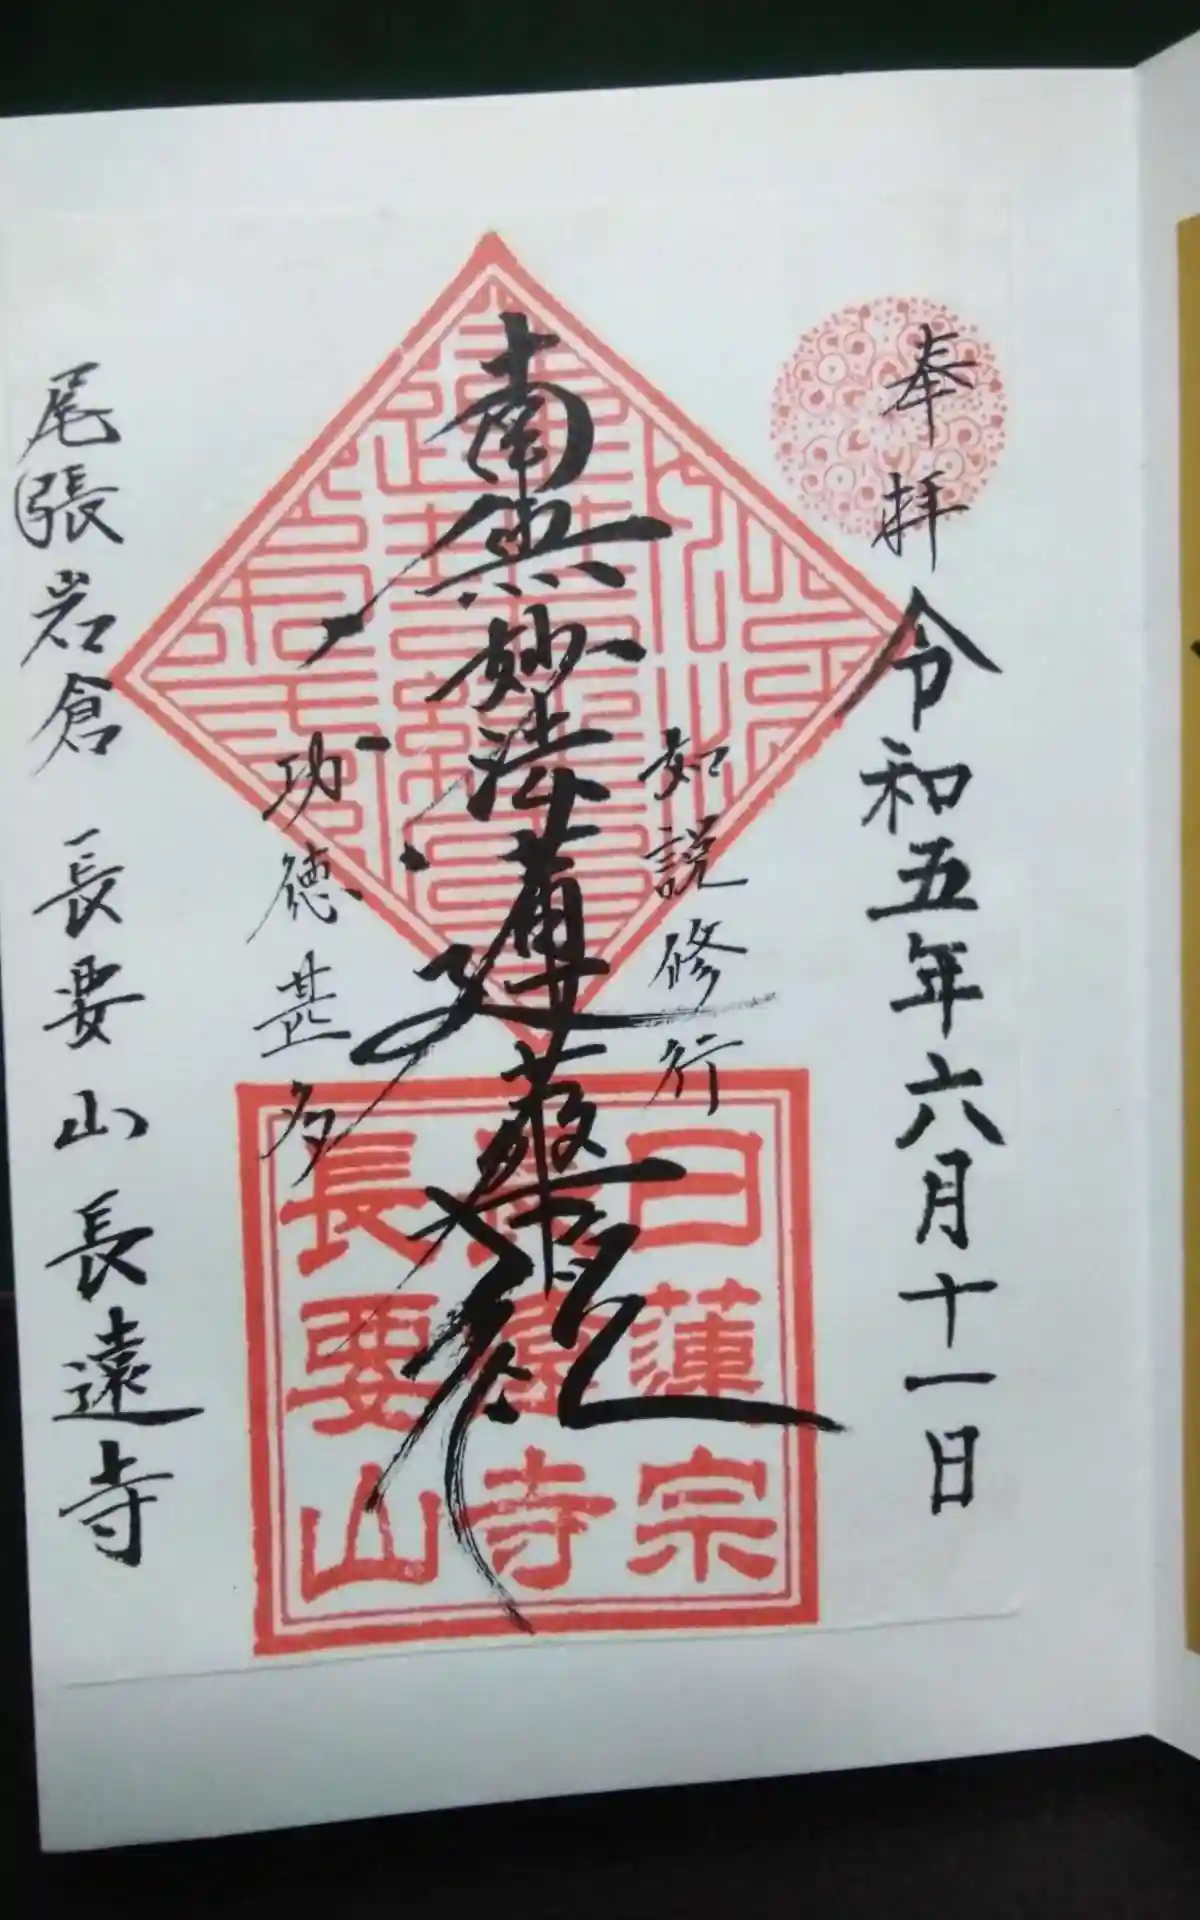 奉拝
令和五年六月十一日
如説修行
南無妙法蓮華経
功徳甚多
尾張岩倉 長要山 長遠寺
日蓮宗
長遠寺
長要山